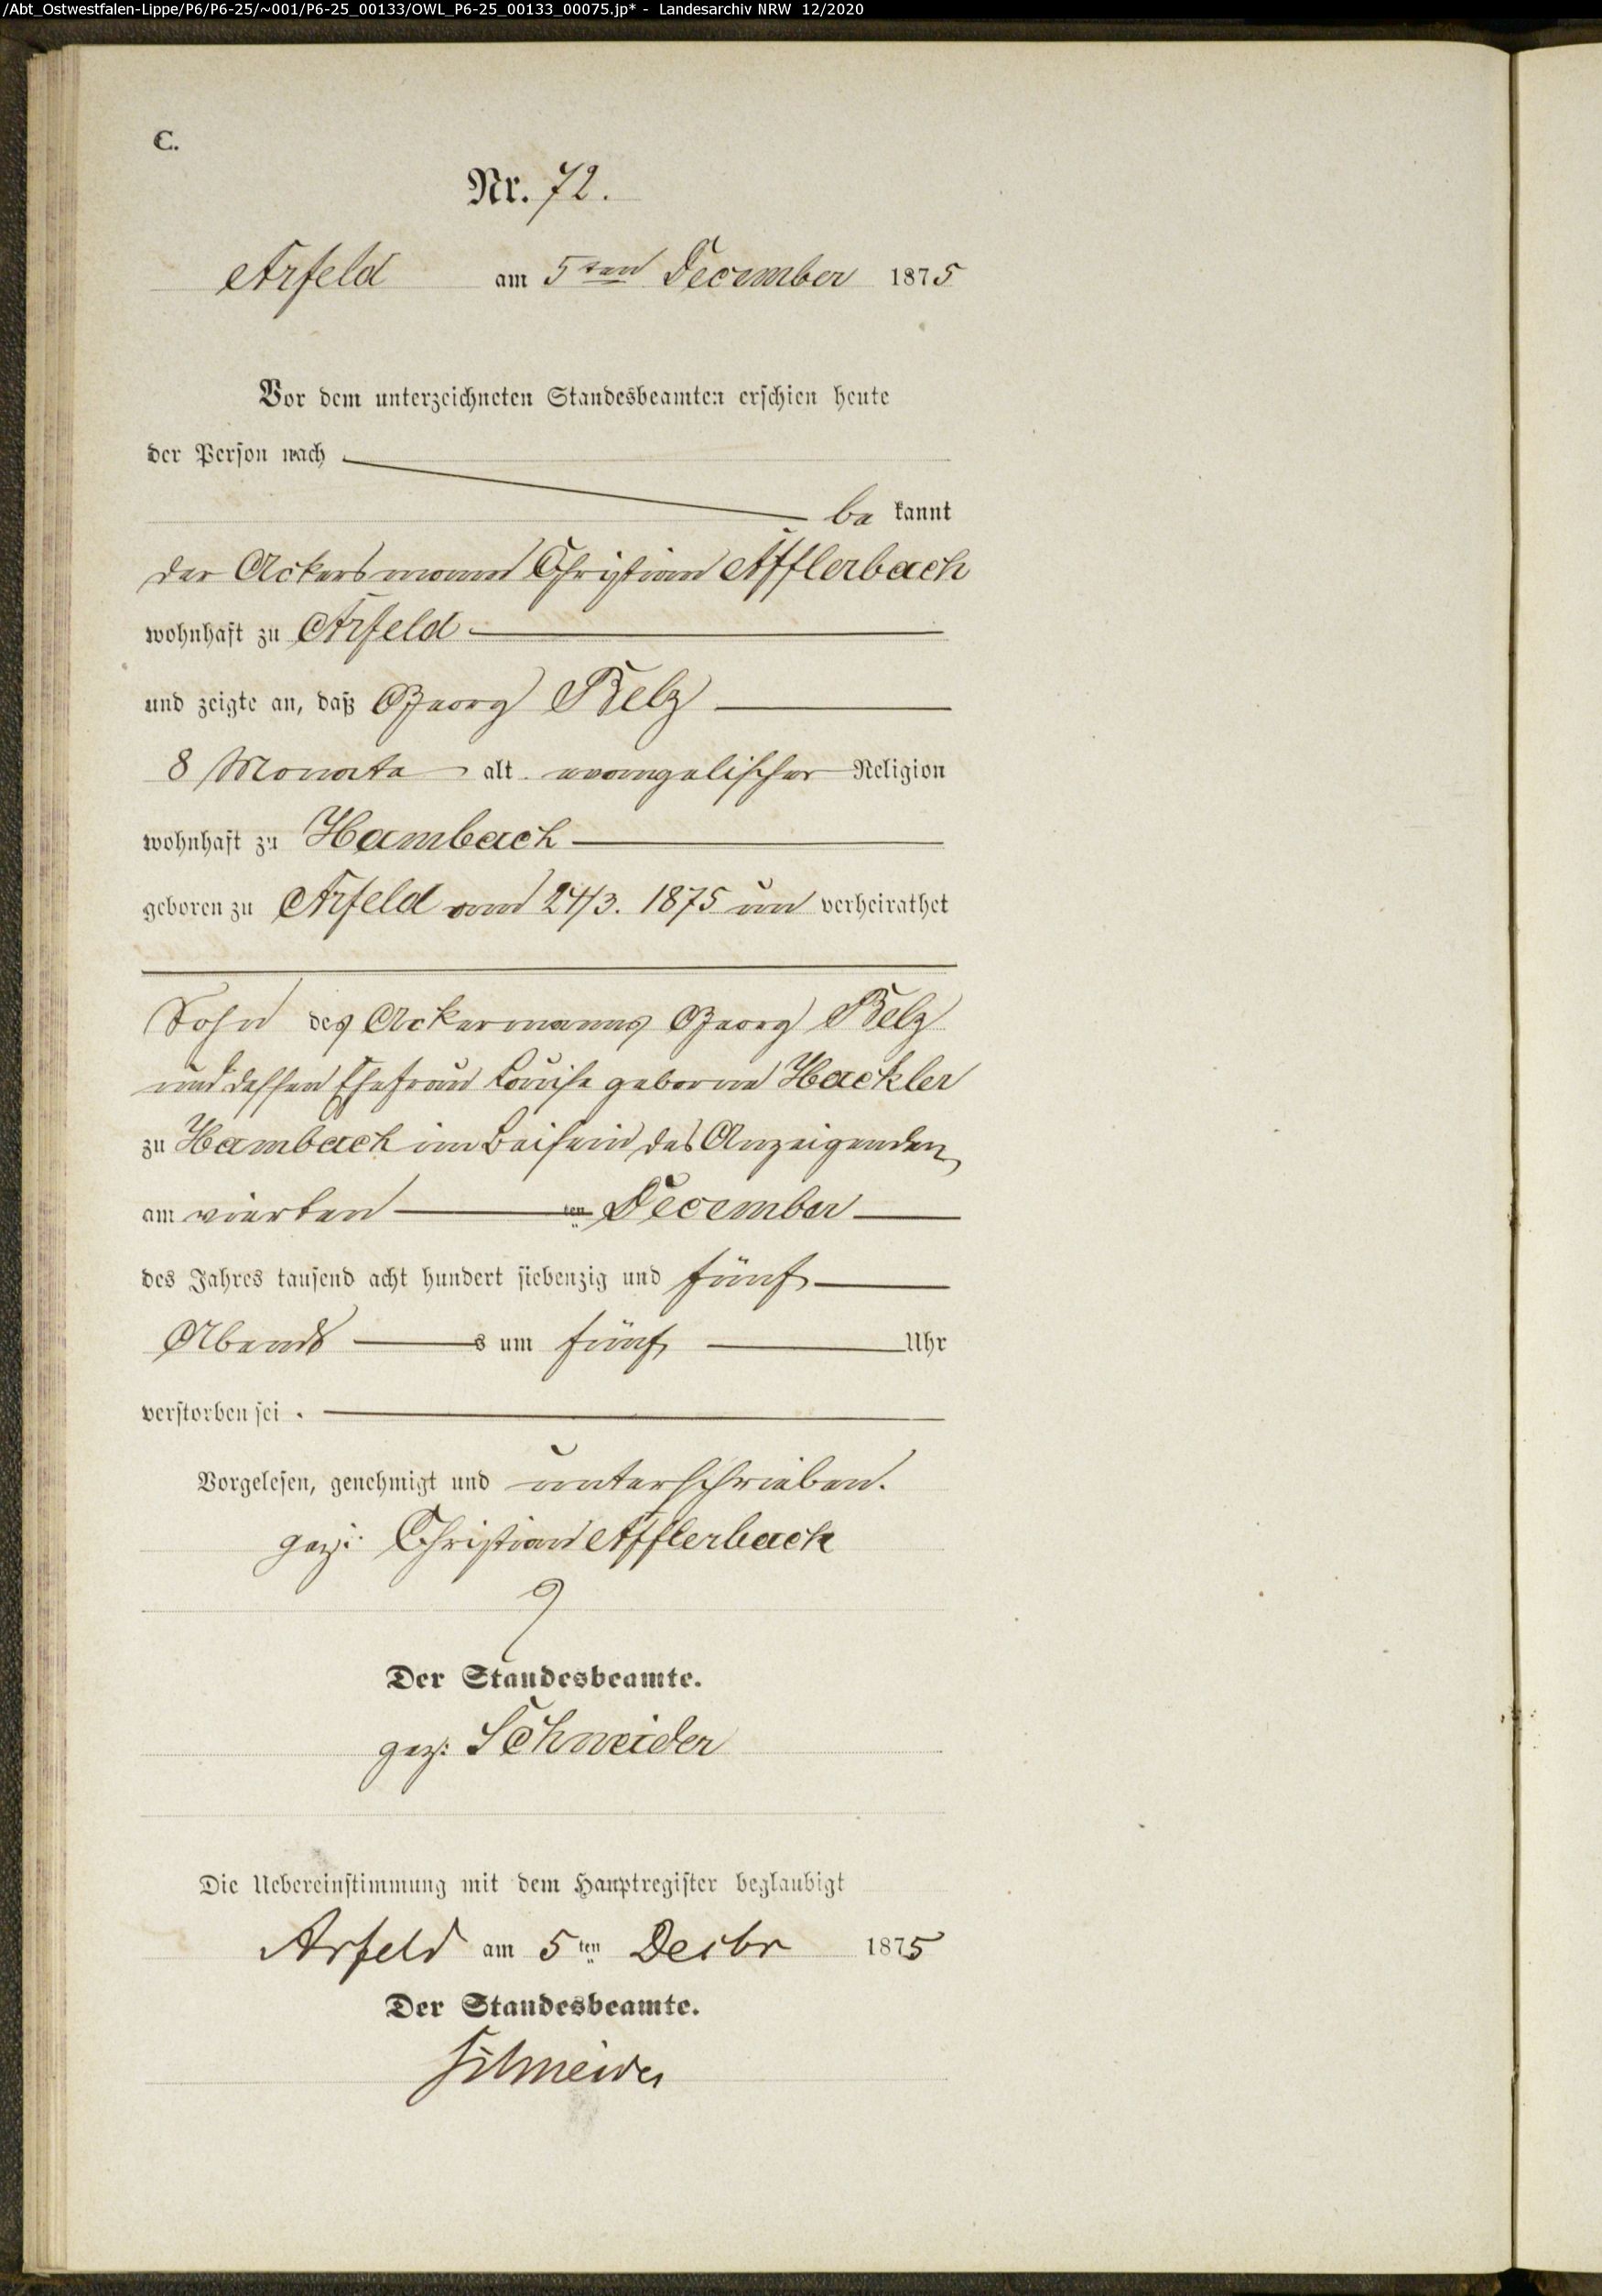 /Abt_Ostwestfalen-Lippe/P6/P6-25/~001/P6-25_00133/OWL_P6-25_00133_00075.jp* - Landesarchiv NRW 12/2020
C.
Nr. 72.
Arfeld am 5ten December 1875
Vor dem unterzeichneten Standesbeamten erschien heute
der Person nach
be kannt
der Ackersmann Christian Afflerbach
wohnhaft zu Arfeld
und zeigte an, daß Georg Belz
8 Monate alt evangelischer Religion
wohnhaft zu Hambach
geboren zu Arfeld am 24/3. 1875 un verheirathet
Sohn des Ackermanns Georg Belz
und dessen Ehefrau Louise geborne Hackler
zu Hambach im Beisein des Anzeigenden
am vierten ten December
des Jahres tausend acht hundert siebenzig und fünf
Abends s um fünf Uhr
verstorben sei.
Vorgelesen, genehmigt und unterschrieben.
gez: Christian Afflerbach
Der Standesbeamte.
gez: Schneider
Die Uebereinstimmung mit dem Hauptregister beglaubigt
Arfeld am 5ten Decbr 1875
Der Standesbeamte.
Schneider